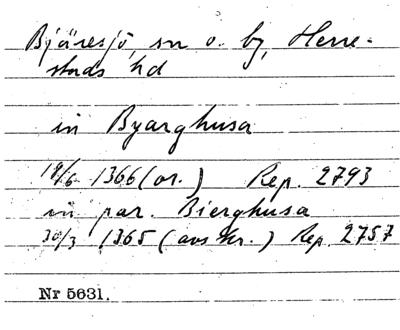 Bjäresjö, sn o. by, Herre-
stads hd
in Byarghusa
19/6 1366 (or.) Rep. 2793
in par. Bierghusa
30/3 1365 (avskr.) Rep. 2757
Nr 5631.